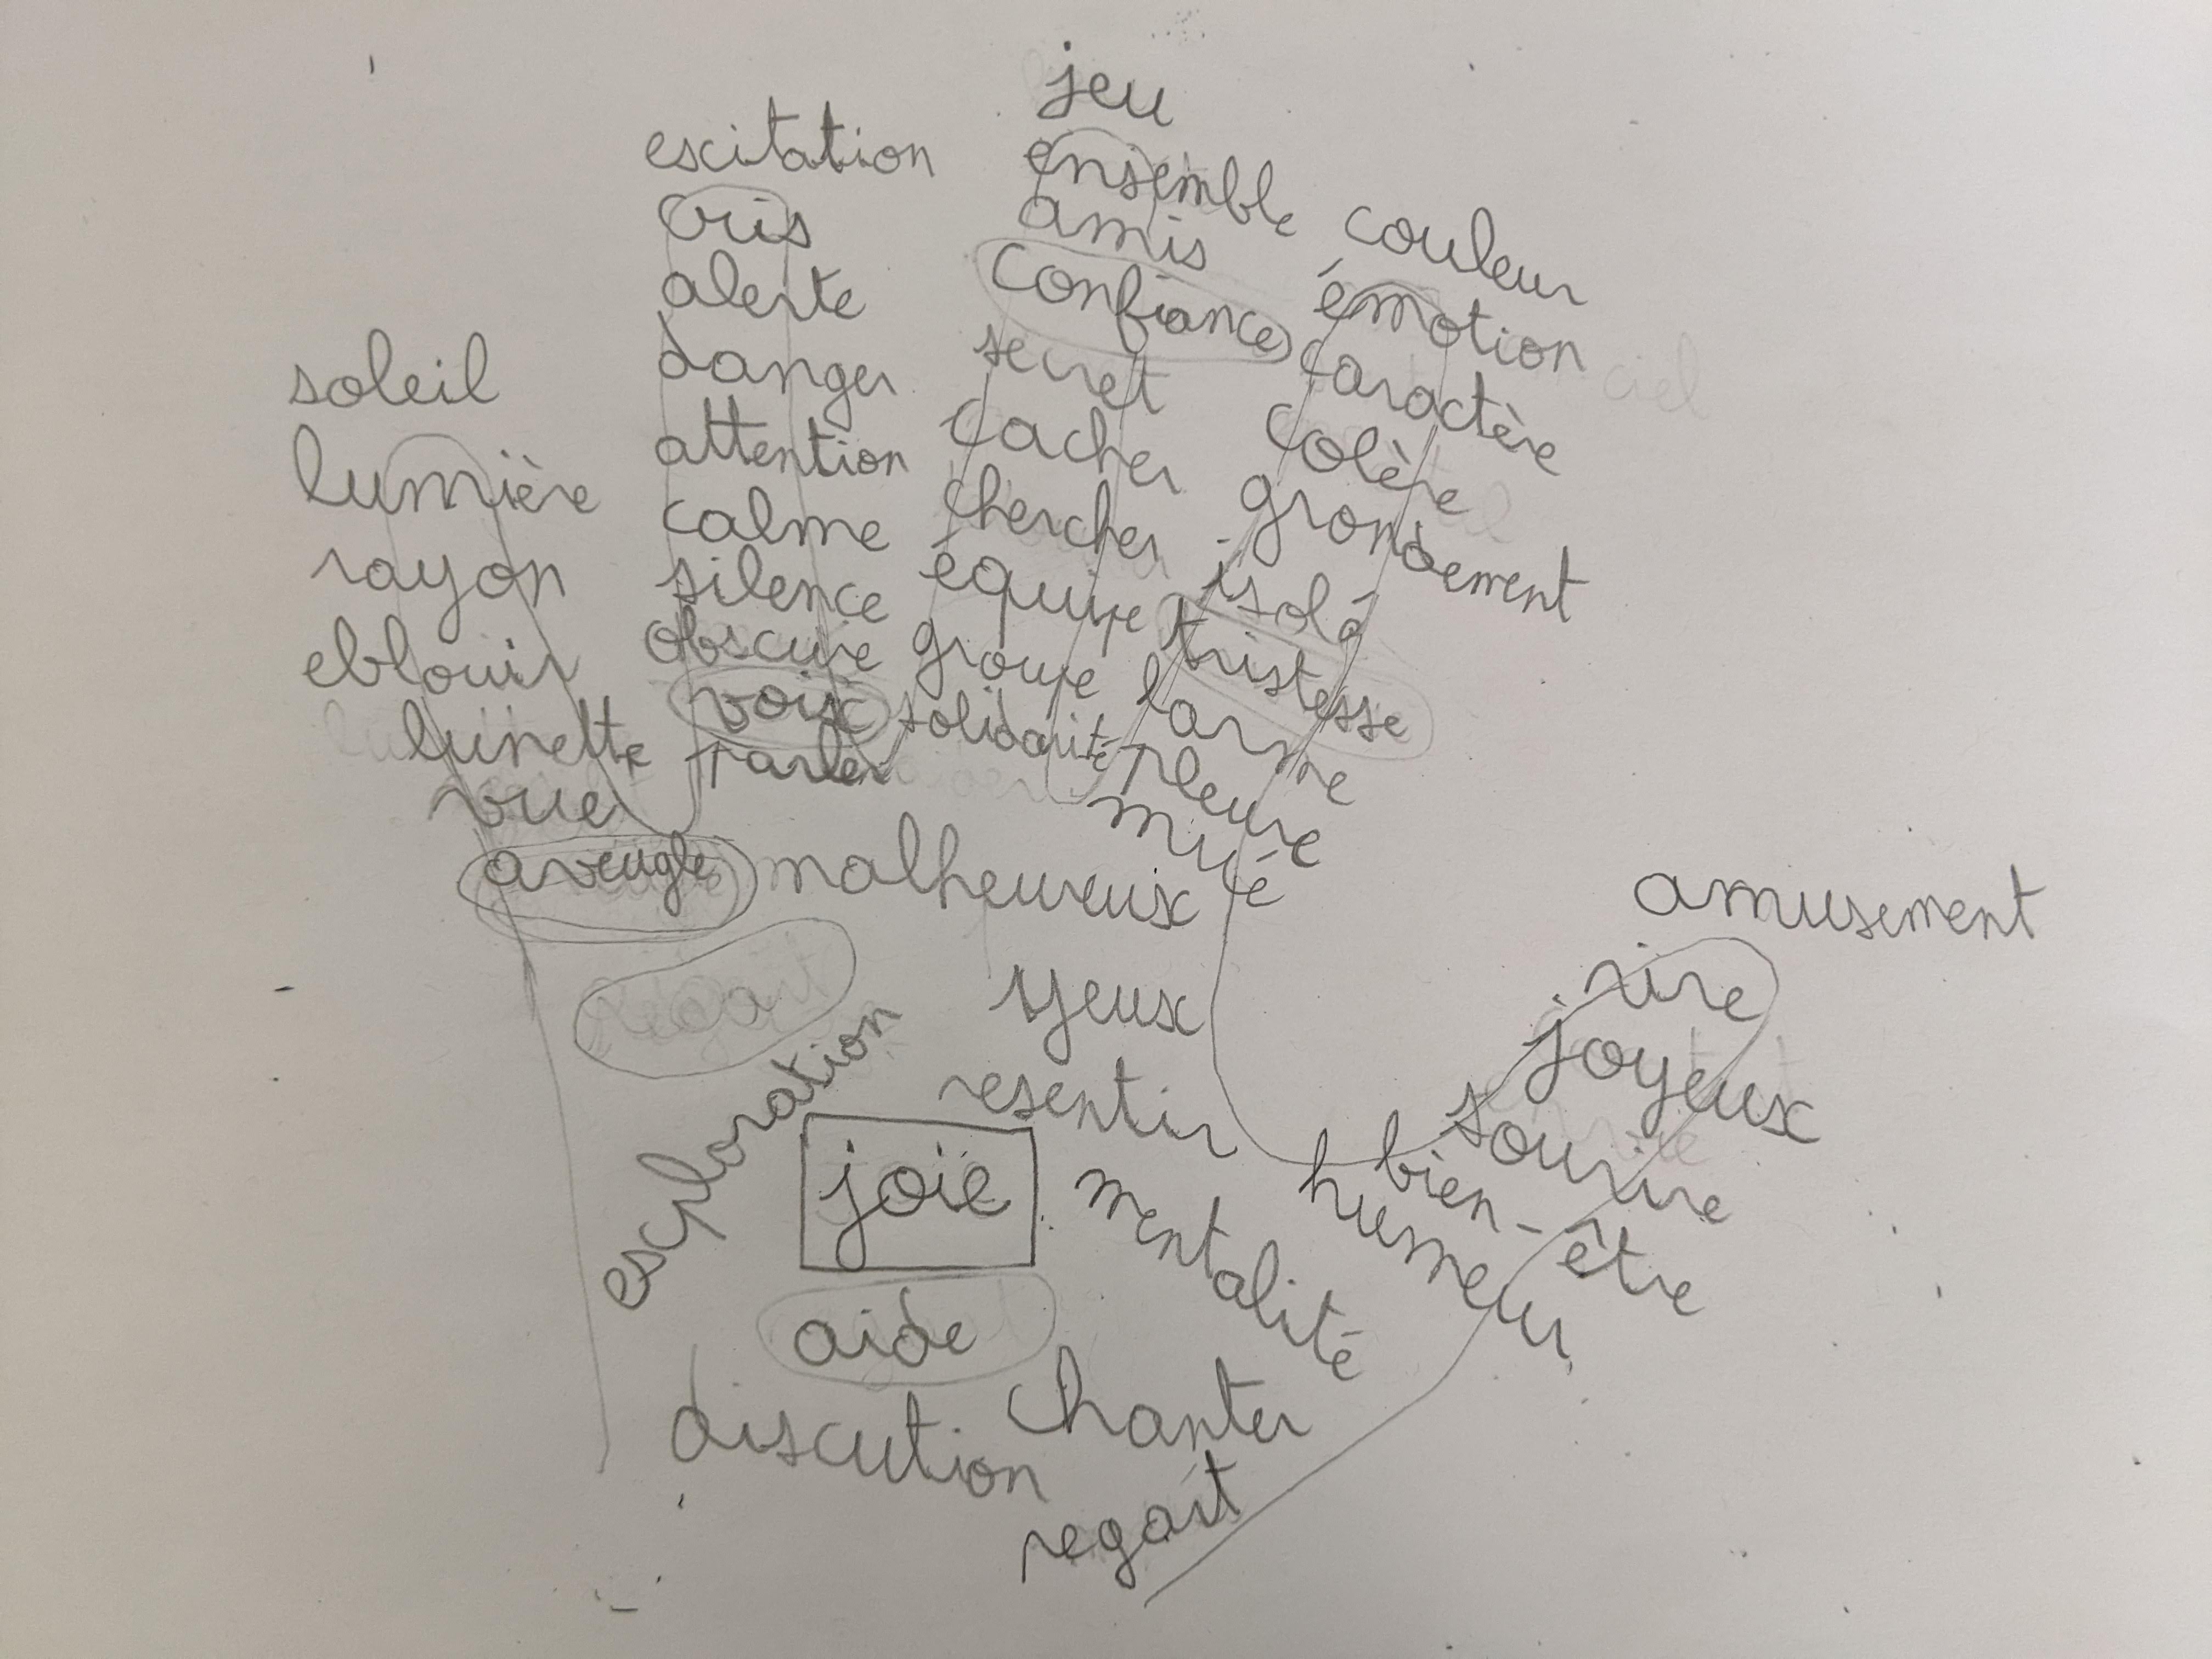 soleil
lumière
rayon
eblouir
lunette
vue
aveugle
escitation
cris
alerte
danger
attention
calme
silence
obscure
voix
parler
jeu
ensemble
amis
confiance
secret
cacher
chercher
équipe
groupe
solidarité
couleur
émotion
caractère
colère
grondement
isolé
tristesse
larme
pleure
mué
malheureux
amusement
rire
joyeux
sourire
bien-être
humeur
yeux
resentir
mentalité
regait
exploration
joie
aide
discution
chanter
regait
ciel